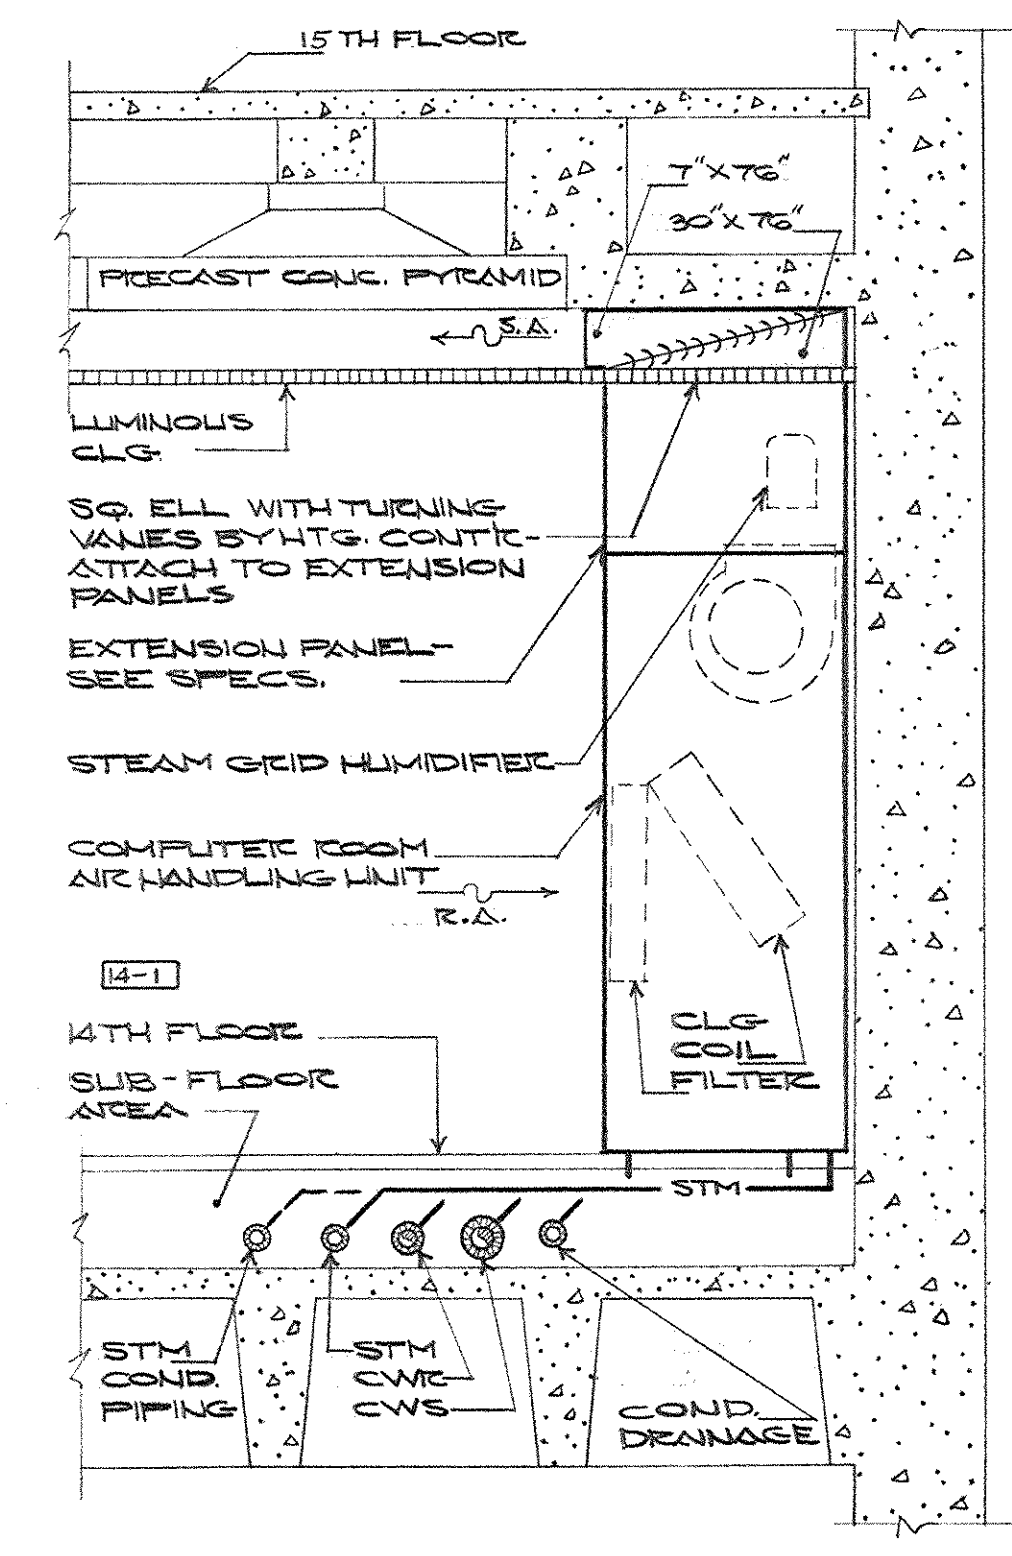 15TH FLOOR
7"X76"
30"X76"
PRECAST CONC. PYRAMID
S.A.
LUMINOUS
CLG.
SQ. ELL WITH TURNING
VANES BY HTG. CONTR-
ATTACH TO EXTENSION
PANELS
EXTENSION PANEL-
SEE SPECS.
STEAM GRID HUMIDIFIER
COMPUTER ROOM
AIR HANDLING UNIT
R.A.
14-1
14TH FLOOR
CLG
COIL
FILTER
SUB-FLOOR
AREA
STM
STM
COND.
PIPING
STM
CWR
CWS
COND.
DRAINAGE